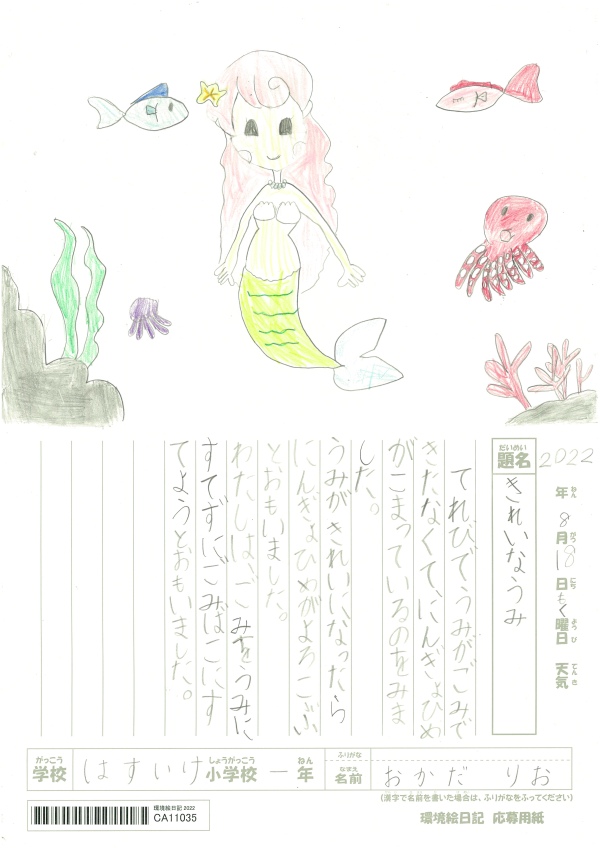 2022年 8月18日 もく曜日 天気
ねん がつ にち ようび てんき
だいめい
題名 きれいなうみ
てれびで、うみがごみで
きたなくて、にんぎょひめ
がこまっているのをみま
した。
うみがきれいになったら
にんぎょひめがよろこぶ
とおもいました。
わたしは、ごみをうみに
すてずにごみばこにす
てようとおもいました。
がっこう しょうがっこう ねん ふりがな
学校 はすいけ小学校 一年
なまえ
名前 おかだ りお
(漢字で名前を書いた場合は、ふりがなをふってください)
環境絵日記 2022
CA11035
環境絵日記 応募用紙